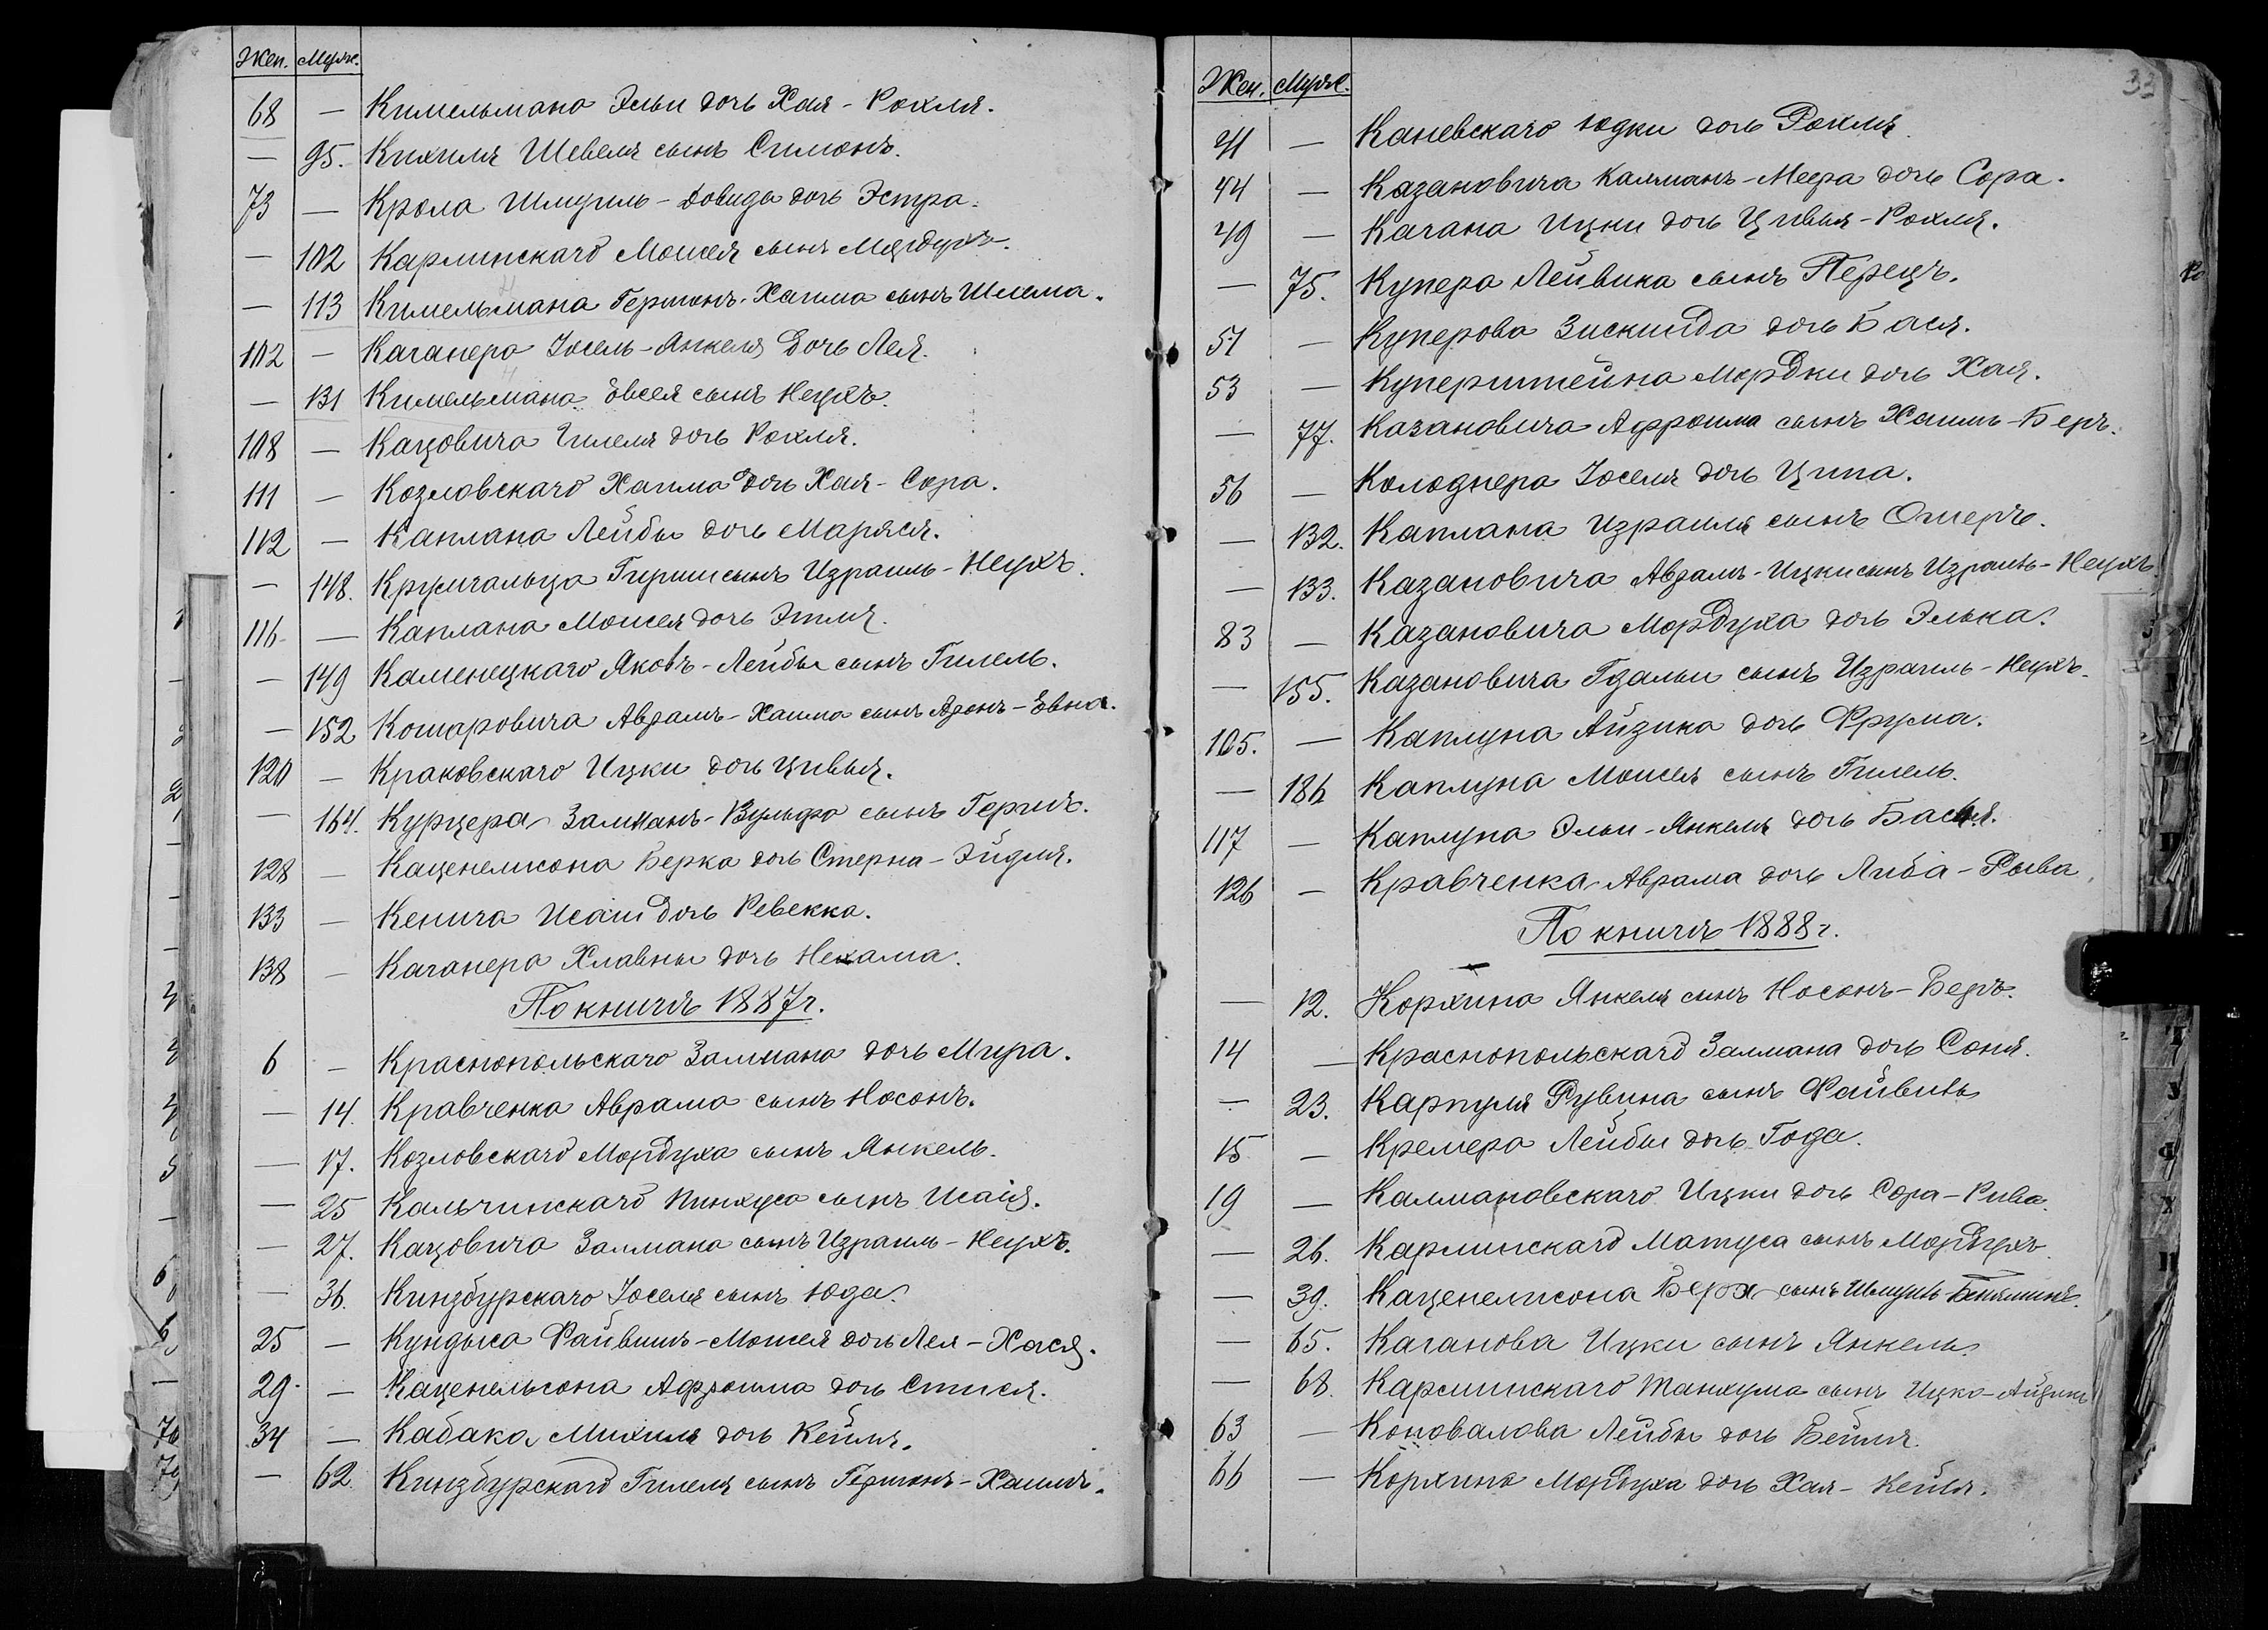 Жен. Муж.
68 — Кимельмана Эльи дочь Хая-Рохля.
— 95. Кихиля Шевеля сынъ Симонъ.
73 — Крола Шмуиль-Довида дочь Эстра.
— 102 Карлинскаго Моисея сынъ Мордухъ.
— 113 Кимельмана Гершонъ-Хаима сынъ Шлема.
102 — Каганера Іосель-Янкеля дочь Лея.
— 131 Кимельмана Евсея сынъ Неухъ.
108 — Кацовича Гилеля дочь Рохля.
111 — Козловскаго Хаима дочь Хая-Сора.
112 — Каплана Лейбы дочь Маряся.
— 148. Кримгальца Гирши сынъ Израиль-Неухъ.
116 — Каплана Моисея дочь Этля.
— 149 Каменецкаго Яковъ-Лейбы сынъ Гилель.
— 152 Комаровича Авраамъ-Хаима сынъ Аронъ-Евна.
120 — Краковскаго Ицки дочь Цивья.
— 164. Курцера Залманъ-Вульфа сынъ Гершъ.
128 — Каценелисона Берка дочь Стерна-Эйдля.
133 — Кенига Исаіи дочь Ревекка.
138 — Каганера Хлавны дочь Нехама.
По книгѣ 1887г.
6 — Краснопольскаго Залмана дочь Мира.
— 14. Кравченка Аврама сынъ Носонъ.
— 17. Козловскаго Мордуха сынъ Янкель.
— 25 Кальчинскаго Пинхуса сынъ Исаія.
— 27. Кацовича Залмана сынъ Израиль-Неухъ.
— 36. Кинзбурскаго Іоселя сынъ Юда.
25 — Кундыса Файвишъ-Моисея дочь Лея-Хася.
29. — Каценельсона Афроима дочь Стися.
34 — Кабака Михиля дочь Кейля.
— 62. Кинзбурскаго Гилеля сынъ Гершонъ-Хаимъ.
Жен. Муж.
33
41 — Каневскаго Юдки дочь Рохля.
44 — Казановича Калманъ-Меера дочь Сора.
49 — Кагана Ицки дочь Цивья-Рохля.
— 75. Купера Лейвика сынъ Перецъ.
51 — Куперова Зискинда дочь Бася.
53 — Куперштейна Мордки дочь Хая.
— 77. Казановича Афроима сынъ Хаимъ-Беръ.
56 — Колоднера Іоселя дочь Ципа.
— 132. Каплана Израиля сынъ Ошеръ.
— 133. Казановича Авраамъ-Ицки сынъ Израиль-Неухъ
83 — Казановича Мордуха дочь Элька.
— 155. Казановича Гдальи сынъ Израиль-Неухъ.
105. — Каплуна Айзика дочь Фрума.
— 186 Каплуна Моисея сынъ Гилель.
117 — Каплуна Эльи-Янкеля дочь Басья.
126 — Кравченка Аврама дочь Либа-Рыва
По книгѣ 1888г.
— 12. Коркина Янкеля сынъ Носонъ-Беръ.
14 — Краснопольскаго Залмана дочь Соня.
— 23. Карпуля Рувина сынъ Файвишъ
15 — Кремера Лейбы дочь Года.
19 — Калмановскаго Ицки дочь Сора-Рива.
— 26. Карлинскаго Матуса сынъ Мордухъ
— 39. Каценелисона Бера сынъ Шмуилъ-Беньминъ.
— 65. Каганова Ицки сынъ Янкель.
— 68. Карлинскаго Танхума сынъ Ицка-Айзикъ
63 — Коновалова Лейбы дочь Бейля.
66 — Коркина Мордуха дочь Хая-Кейля.